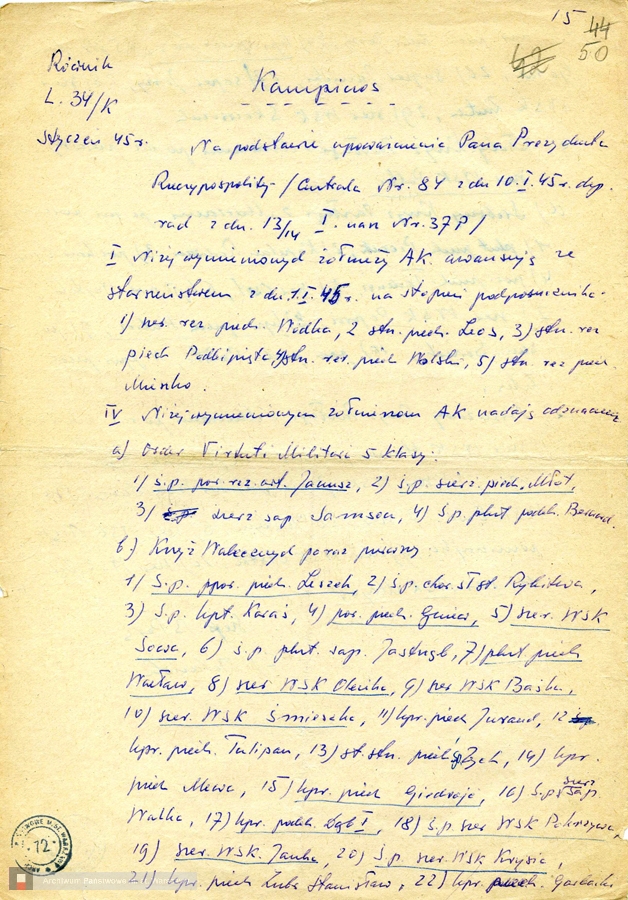 15
44
42 50
Rocznik
L. 34/K
Styczeń 45 r.
Kampinos
Na podstawie upoważnienia Pana Prezydenta
Rzeczypospolitej /Centrala Nr. 84 z dn. 10.I.45r. dep.
rad z dn. 13/14 I. nasz Nr. 37P/
I Niżej wymienionych żołnierzy AK. awansuję ze
starszeństwem z dn. 1.I.45 r. na stopień podporucznika.
1) rez. piech. Wódka, 2 piech. Leos, 3) rez
piech Podbipięta, 4) rez. piech Wolski, 5) rez piech.
IV Niżej wymienionym żołnierzom AK nadaję odznaczenia
a) Order Virtuti Militari 5 klasy:
1) ś.p. por. rez. art. Janusz, 2) ś.p. sierż. piech. Młot,
3) ś.p. sierż sap Samson, 4) ś.p. plut podch.
b.) Krzyż Walecznych po raz pierwszy
1) Ś.p. ppor. piech. Leszek, 2) ś.p. chor. st. st. Rybitwa,
3) Ś.p. kpt. Karaś, 4) por. piech. 5) szer. WSK
Sowa, 6) ś.p. plut. sap. Jastrząb, 7) plut piech
Wacław, 8) szer WSK 9) szer WSK Baśka,
10) szer. WSK Śmieszka, 11) kpr. piech Jurand, 12 śp
kpr. piech. Tulipan, 13) st. piech. 14) kpr.
piech Mewa, 15) kpr. piech 16) Ś.p. szer sap.
Walka, 17) kpr. podch. Dąb I, 18) ś.p. szer WSK Pokrzywa,
19) szer. WSK. Janka, 20) Ś.p. szer. WSK Krysia,
21) kpr. piech Stanisław, 22) kpr. piech.
12
Archiwum Państwowe